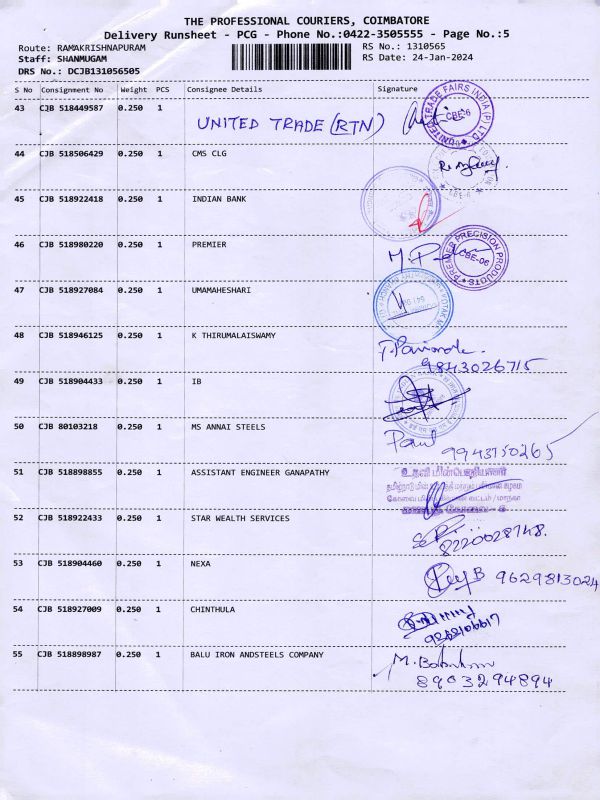 THE PROFESSIONAL COURIERS, COIMBATORE
Delivery Runsheet - PCG - Phone No.:0422-3505555 - Page No.:5
Route: RAMAKRISHNAPURAM RS No.: 1310565
Staff: SHANMUGAM RS Date: 24-Jan-2024
DRS No.: DCJB131056505
S No Consignment No Weight PCS Consignee Details Signature
43 CJB 518449587 0.250 1 UNITED TRADE (RTN)
UNITED TRADE FAIRS INDIA (P) LTD CBE-6
44 CJB 518506429 0.250 1 CMS CLG
45 CJB 518922418 0.250 1 INDIAN BANK
46 CJB 518980220 0.250 1 PREMIER
PREMIER PRECISION PRODUCTS CBE-06
47 CJB 518927084 0.250 1 UMAMAHESHARI
48 CJB 518946125 0.250 1 K THIRUMALAISWAMY
9843026715
49 CJB 518904433 0.250 1 IB
50 CJB 80103218 0.250 1 MS ANNAI STEELS
Paul 9943750265
51 CJB 518898855 0.250 1 ASSISTANT ENGINEER GANAPATHY
உதவி மின்பொறியாளர்
52 CJB 518922433 0.250 1 STAR WEALTH SERVICES
8220028748.
53 CJB 518904460 0.250 1 NEXA
9629813024
54 CJB 518927009 0.250 1 CHINTHULA
55 CJB 518898987 0.250 1 BALU IRON ANDSTEELS COMPANY
8903294894